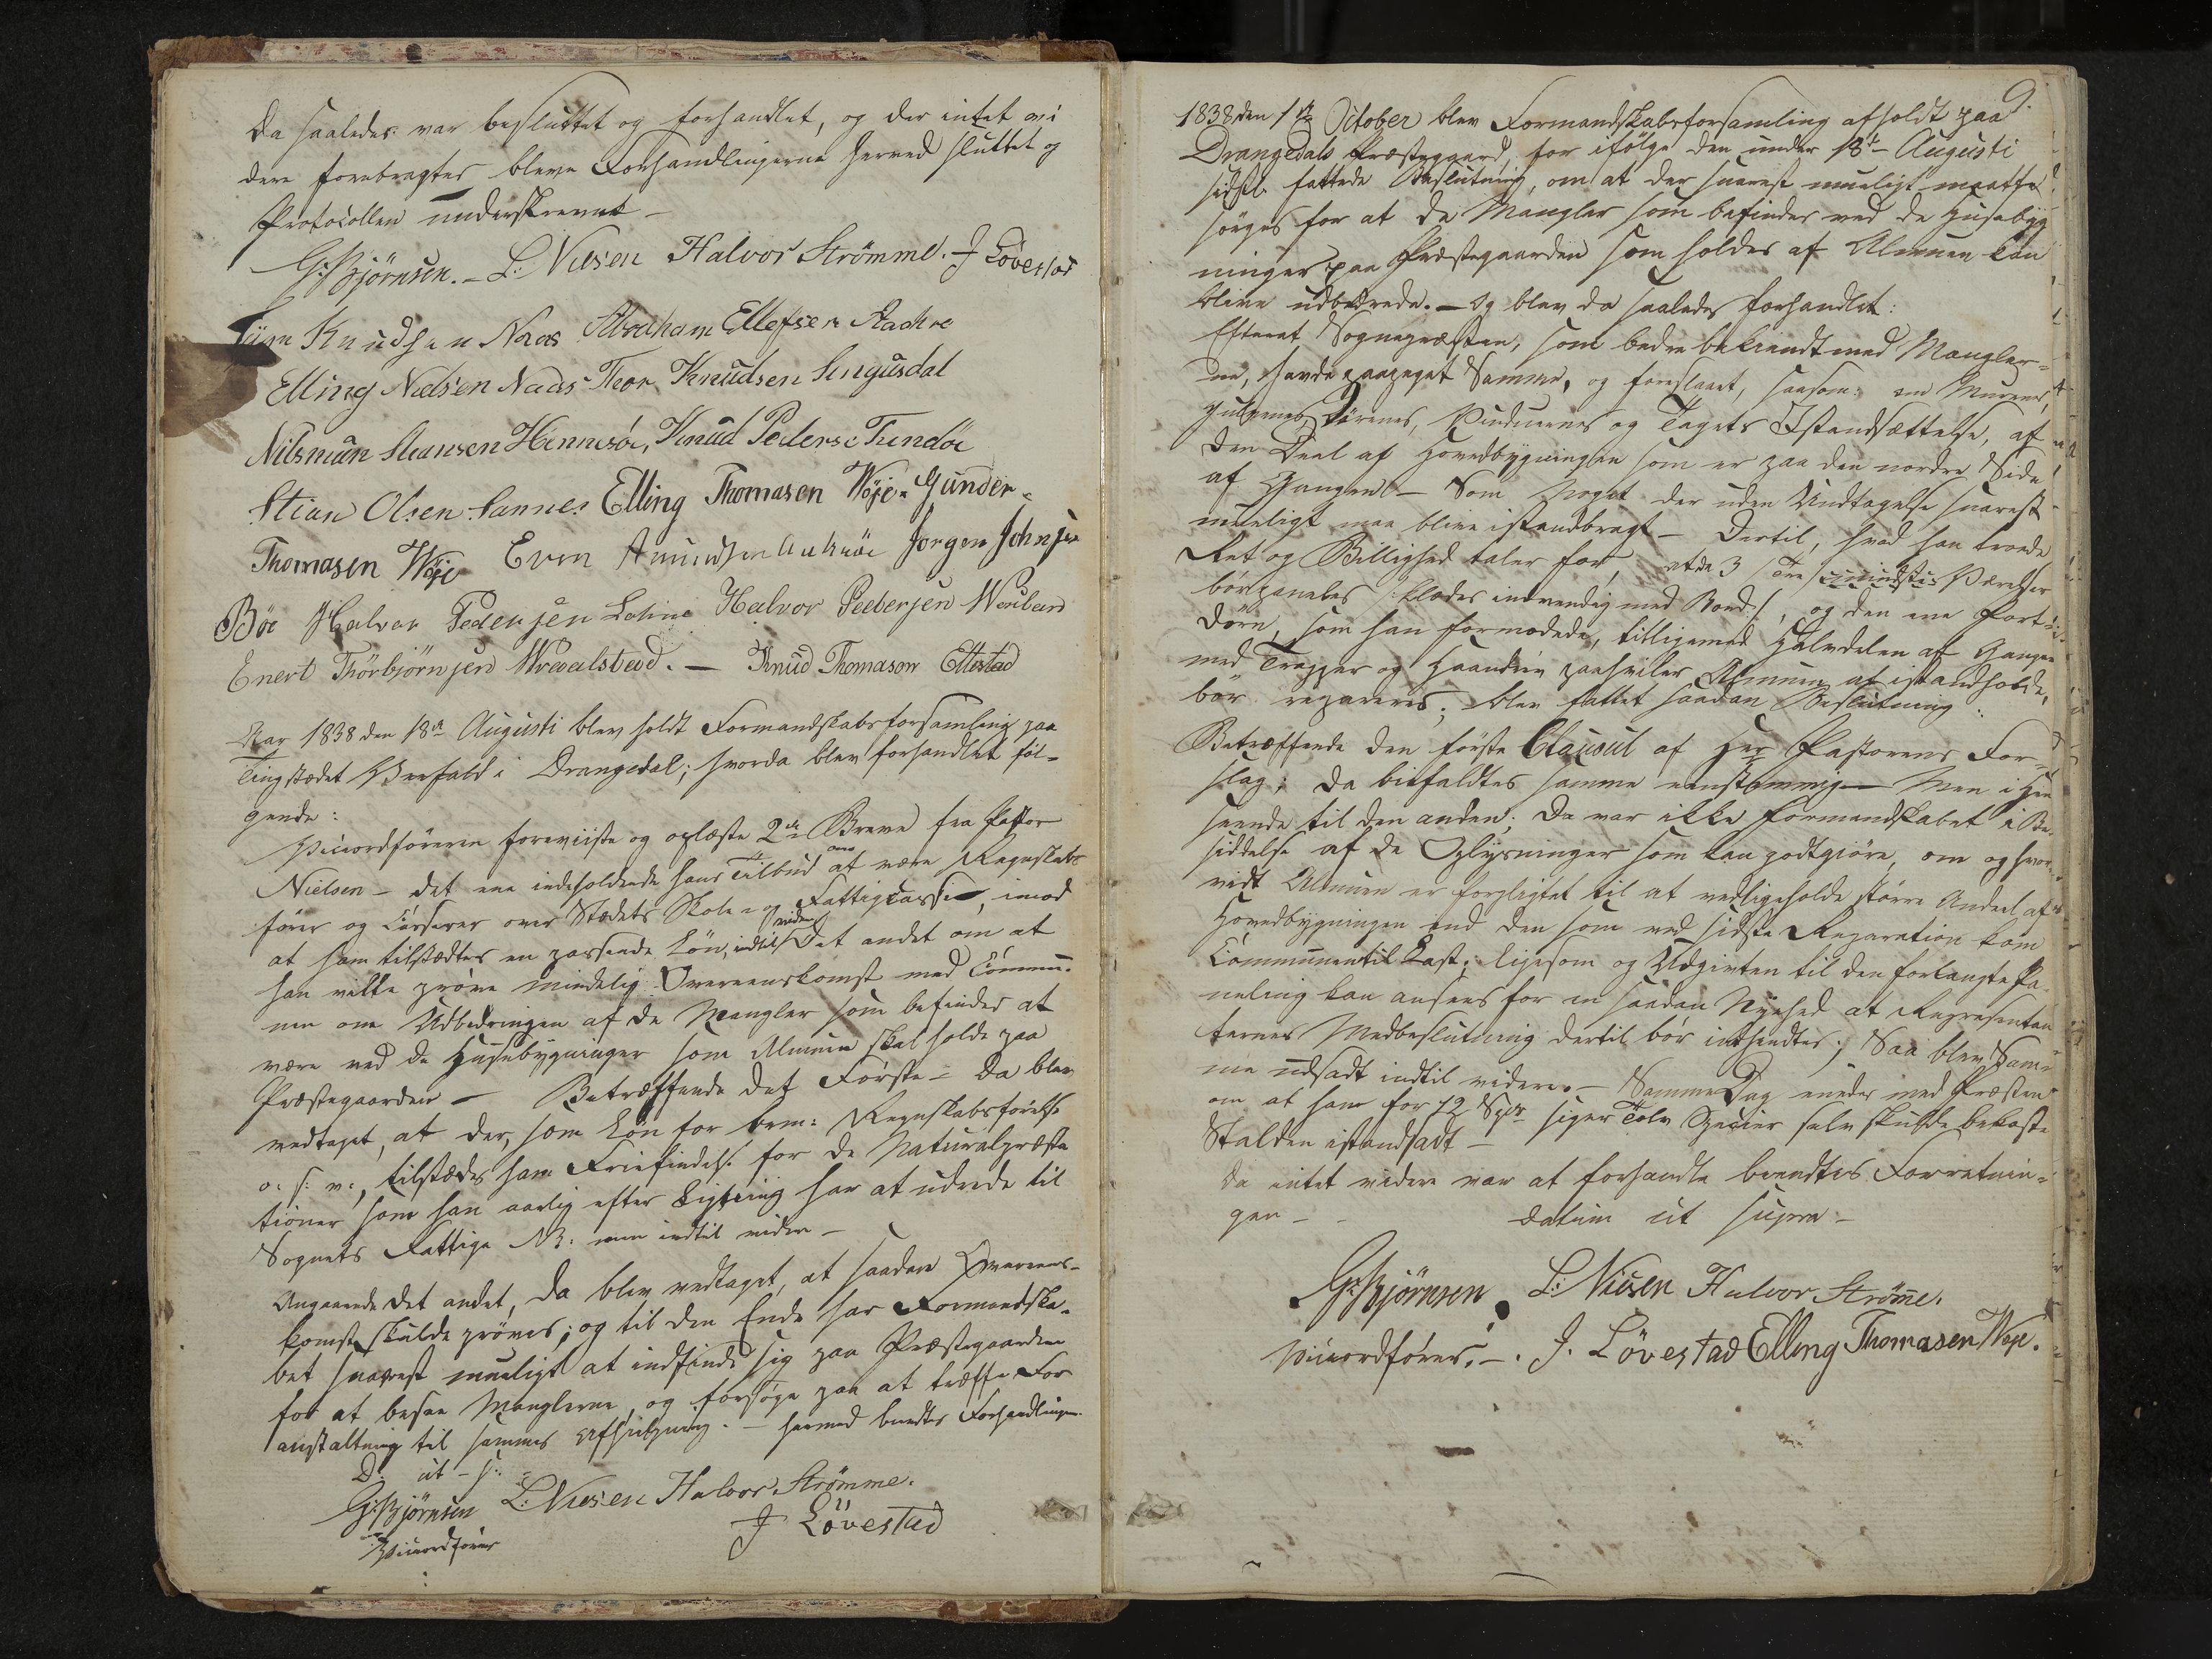 Da saaledes var besluttet og forhandlet, og der intet vi
dere forebragtes bleve Forhandlingerne herved sluttet og
Protocollen underskrevet –
G: Bjørnsen. – L: Nielsen Halvor Strömme. J Lövestad
Knudsen Naas Abraham Ellefsen Aackre
Elling Nielsen Naas Thor Knudsen Lingusdal
Nilsmün Hansen Hennesöe, Knud Peders: Tendöe
Stian Olsen Sannes Elling Thomasen Wöje. Gunder
Thomasen Wöje Even Amundsen Jörgen Johnsen
Böe Halvor Pedersen Lohne Halvor Pedersen
Enert Thörbjörnsen Wraalstad. – Knud Thomason Ettestad
Aar 1838 den 18de Augusti blev holdt Formandskabsforsamling paa
Tingstædet i Drangedal; hvorda blev forhandlet föl-
gende:
Viceordföreren foreviiste og oplæste 2de Breve fra Pastor
Nielsen – det ene indeholdende hans Tilbud om at være Regnskabs
förer og Casserer over Stædets Skole- og Fattigcasse, imod
at ham tilstædtes en passende Lön, indtil videre Det andet om at
han vilde pröve mindelig Overeenskomst med Commu-
nen om Udbedringen af de Mangler som befindes at
være ved de Husebygninger som Almuen skal holde paa
Præstegaarden – Betræffende det Förste – Da blev
vedtaget, at der, som Lön for bem: Regnskabsförelse
o: s: v:, tilstædes ham Friefindelse for de Naturalpræsta
tioner som han aarlig efter Ligning har at udrede til
Sognets Fattige NB: men indtil videre –
Angaaende det andet, da blev vedtaget, at saadan Overeens-
komst skulde pröves; og til den Ende har Formandska-
bet snarest mueligt at indfinde sig paa Præstegaarden
for at besee Manglerne, og forsöge paa at træffe For
anstaltning til sammes Afhielpning. – hermed endtes Forhandlingen.
D: ut – s:
G: Bjørnsen L: Nielsen Halvor Strömme.
Viceordförer J Lövestad
9.
1838 den 1te October blev Formandskabsforsamling afholdt paa
Drangedals Præstegaard, for ifölge den under 18de Augusti
sidstl. fattede Beslutning, om at der snarest mueligt maatte
sörges for at de Mangler som befindes ved de Husebyg
ninger paa Præstegaarden som holdes af Almuen kan
blive udbedrede. – Og blev da saaledes forhandlet:
Efterat Sognepræsten, som bedre bekiendt med Mangler-
ne, havde paapeget Samme, og foreslaaet, saasom: om Murens,
Gulvenes, Dörenes, Vinduernes og Tagets Istandsættelse, af
den Deel af Hovedbygningen som er paa den nordre Side
af Gangen – Som Noget der uden Undtagelse snarest
mueligt maa blive istandbragt – Dertil, hvad han troede
Ret og Billighed taler for, at de 3 /Tre/ Værelser
bör paneles /: klædes indvendig med Bord :/, og den ene Port-
Dörn, som han formodede, tilligemed Halvdelen af Gangen
med Trapper og paahviler Almuen at istandholde,
bör repareres; blev fattet saadan Beslutning:
Betræffende den förste Clausul af Her Pastorens For-
slag; da bifaldtes samme eenstemmig – Men i Hen
seende til den anden; Da var ikke Formandskabet i Be-
siddelse af de Oplysninger som kan godtgiöre, om og hvor-
vidt Almuen er forpligtet til at vedligeholde större Andeel af
Hovedbygningen end den som ved sidste Reparation kom
Communen til Last; ligesom og Udgivten til den forlangte Pa-
neling kan ansees for en saadan Nyehed at Representan
ternes Medbeslutning dertil bör indhendtes; Saa blev Sam-
me udsadt indtil videre. – Samme Dag enedes med Præsten
om at ham for 12 Spdr siger Tolv Specier selv skulde bekoste
Stalden istandsadt –
Da intet videre var at forhandle eendtes Forretnin-
gen – datum ut supra –
G: Bjørnsen L: Nielsen Halvor Strömme.
Viceordförer. – J. Lövestad Elling Thomasen Wöje.